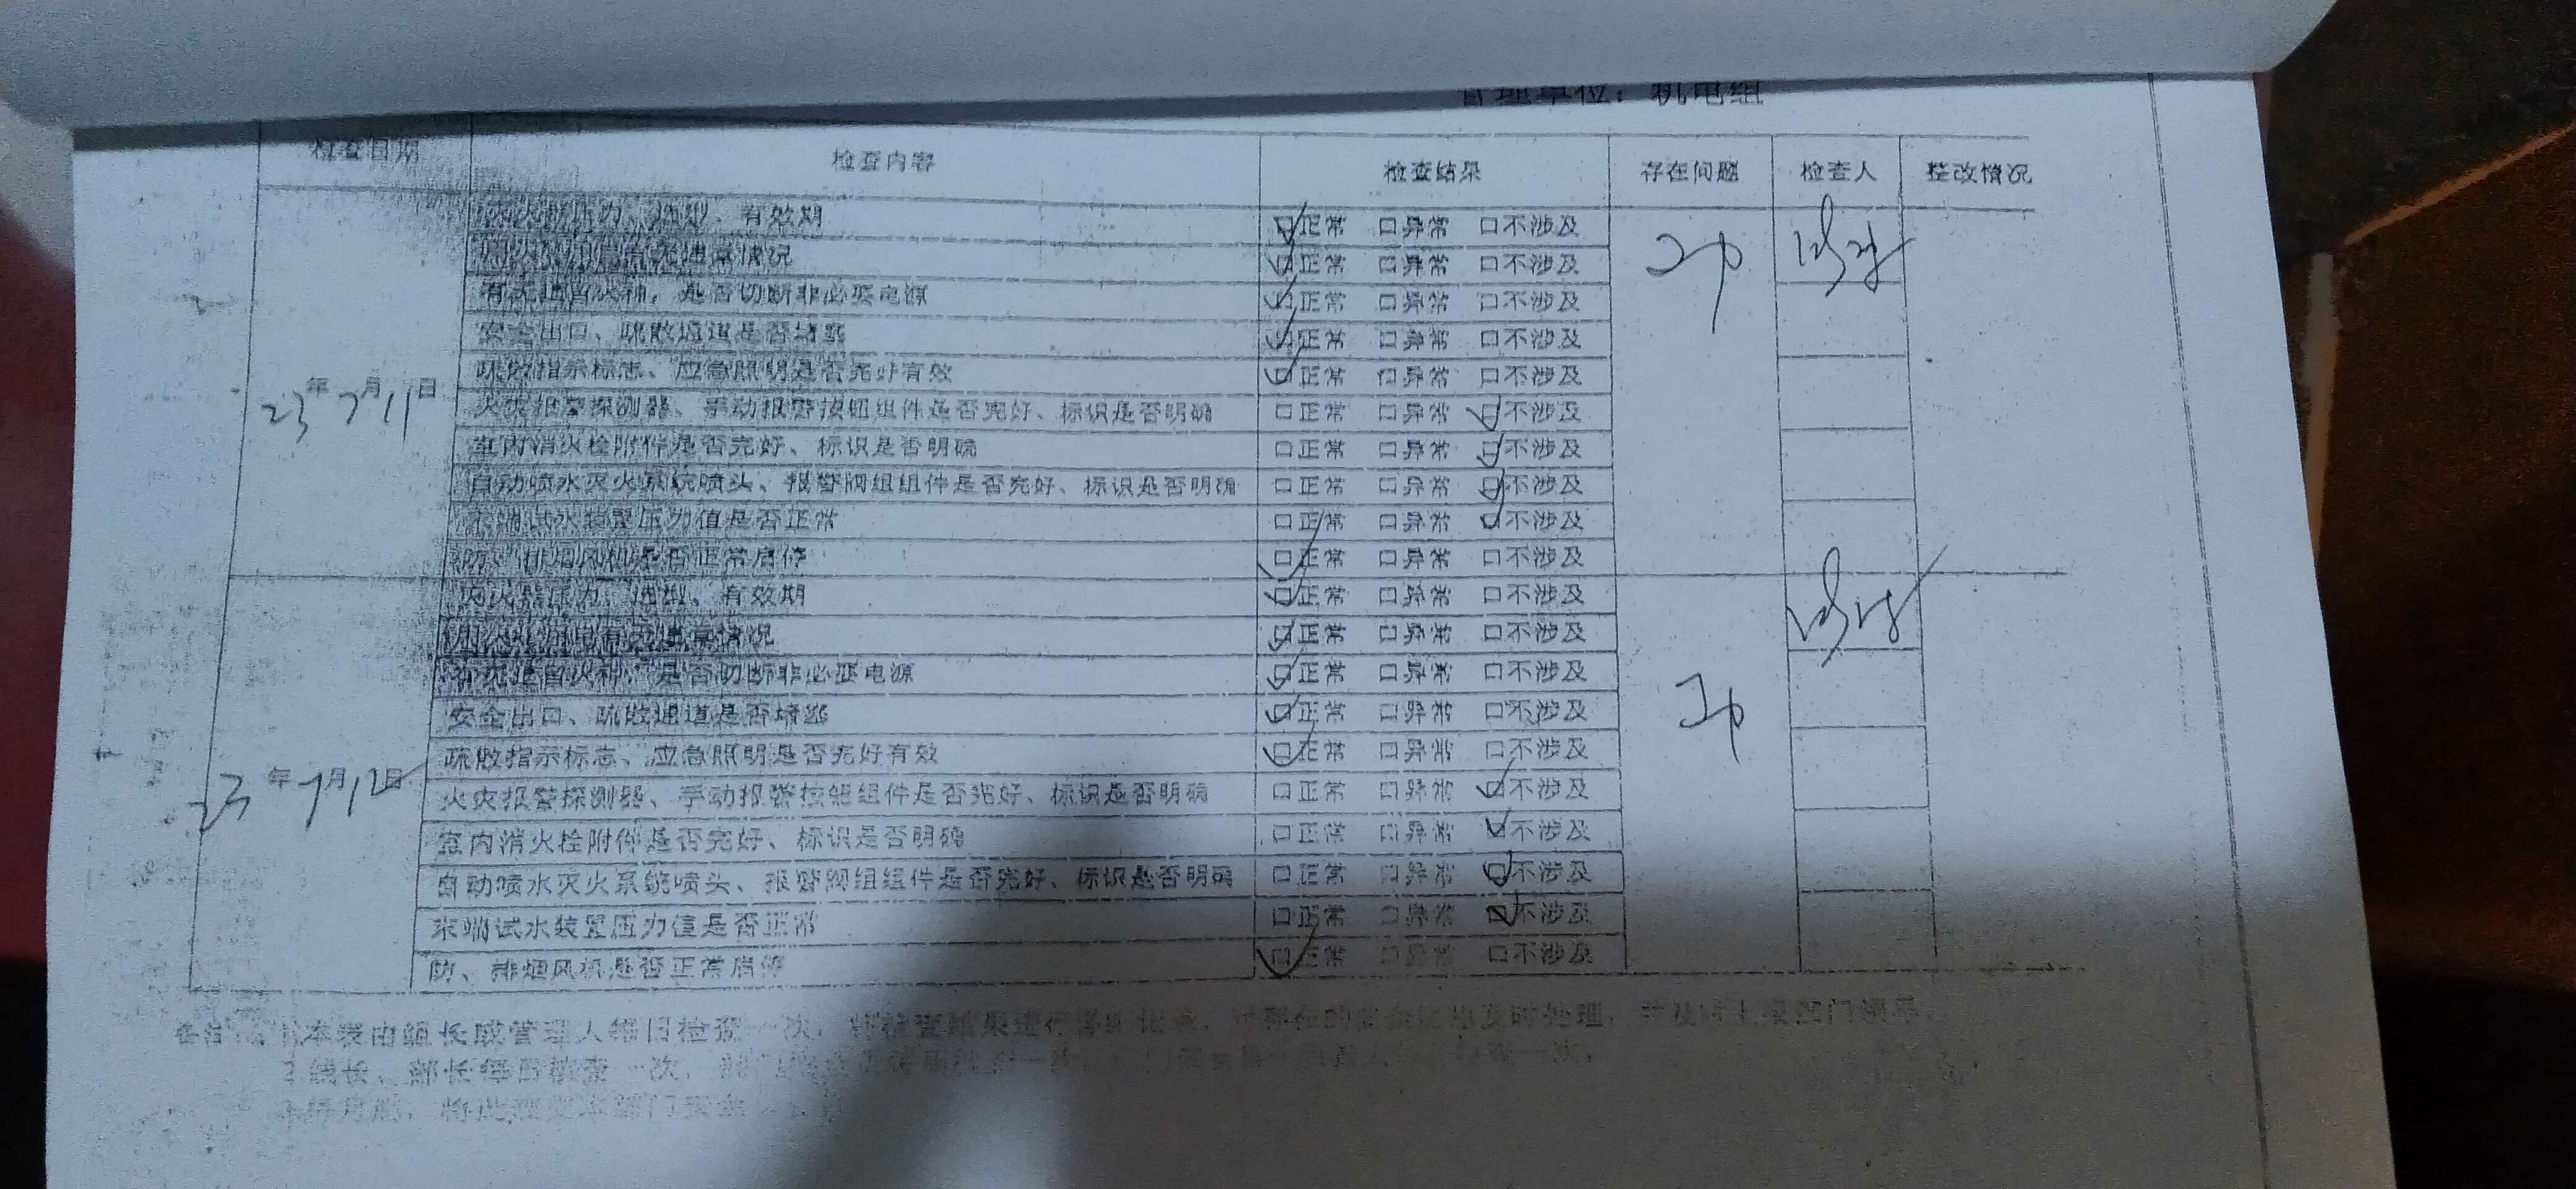 管理单位：机电组
检查日期 检查内容 检查结果 存在问题 检查人 整改情况
23年7月11日
灭火器压力、铅封、有效期 ☑正常 口异常 口不涉及
情况 ☑正常 口异常 口不涉及
有无遗留火种，是否切断非必要电源 ☑正常 口异常 口不涉及
安全出口、疏散通道是否堵塞 ☑正常 口异常 口不涉及
疏散指示标志、应急照明是否完好有效 ☑正常 口异常 口不涉及
火灾报警探测器、手动报警按钮组件是否完好、标识是否明确 口正常 口异常 ☑不涉及
室内消火栓附件是否完好、标识是否明确 口正常 口异常 ☑不涉及
自动喷水灭火系统喷头、报警阀组组件是否完好、标识是否明确 口正常 口异常 ☑不涉及
末端试水装置压力值是否正常 口正常 口异常 ☑不涉及
防、排烟风机是否正常启停 ☑正常 口异常 口不涉及
23年7月12日
灭火器压力、铅封、有效期 ☑正常 口异常 口不涉及
情况 ☑正常 口异常 口不涉及
有无遗留火种，是否切断非必要电源 ☑正常 口异常 口不涉及
安全出口、疏散通道是否堵塞 ☑正常 口异常 口不涉及
疏散指示标志、应急照明是否完好有效 ☑正常 口异常 口不涉及
火灾报警探测器、手动报警按钮组件是否完好、标识是否明确 口正常 口异常 ☑不涉及
室内消火栓附件是否完好、标识是否明确 口正常 口异常 ☑不涉及
自动喷水灭火系统喷头、报警阀组组件是否完好、标识是否明确 口正常 口异常 ☑不涉及
末端试水装置压力值是否正常 口正常 口异常 ☑不涉及
防、排烟风机是否正常启停 ☑正常 口异常 口不涉及
本表由组长或管理人每日检查一次，将检查结果进行
部长每日检查一次，